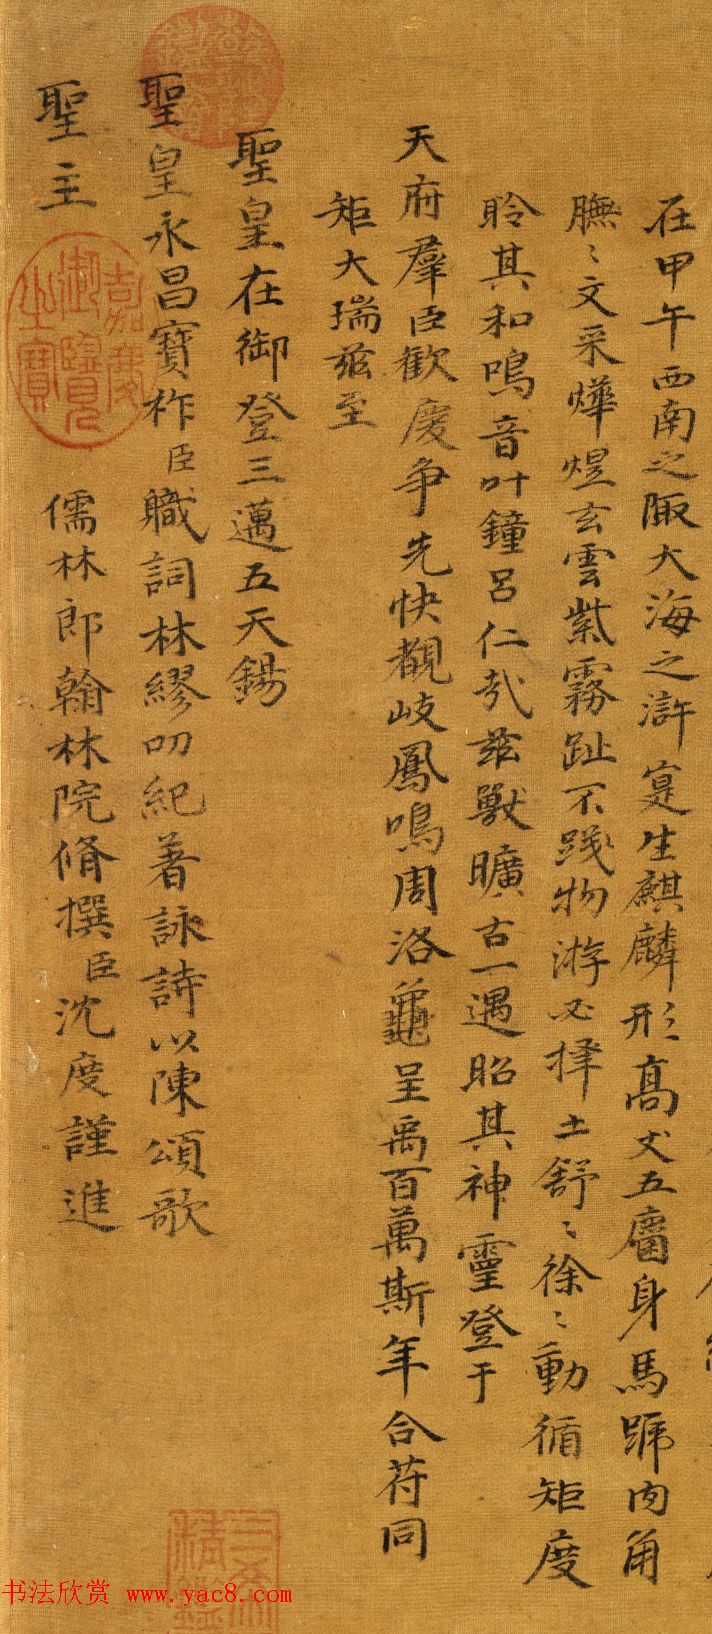 在甲午西南之陬大海之滸寔生麒麟形高丈五麕身馬蹏肉角
膴〻文采燁煜玄雲紫霧趾不踐物游必擇土舒〻徐〻動循矩度
聆其和鳴音叶鐘呂仁哉兹獸曠古一遇昭其神靈登于
天府羣臣歡慶争先快覩岐鳳鳴周洛龜呈禹百萬斯年合苻同
矩大瑞兹至
聖皇在御登三邁五天錫
聖皇永昌寶祚臣職詞林繆叨紀著詠詩以陳頌歌
聖主
儒林郎翰林院脩撰臣沈度謹進
嘉慶御覽之寶
书法欣赏 www.yac8.com